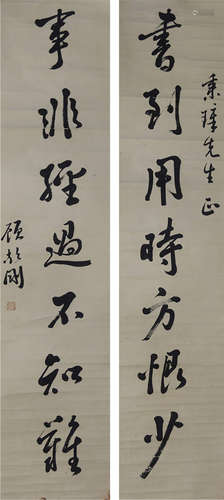 書到用時方恨少
秉鐸先生正
事非經過不知難
顧彭年